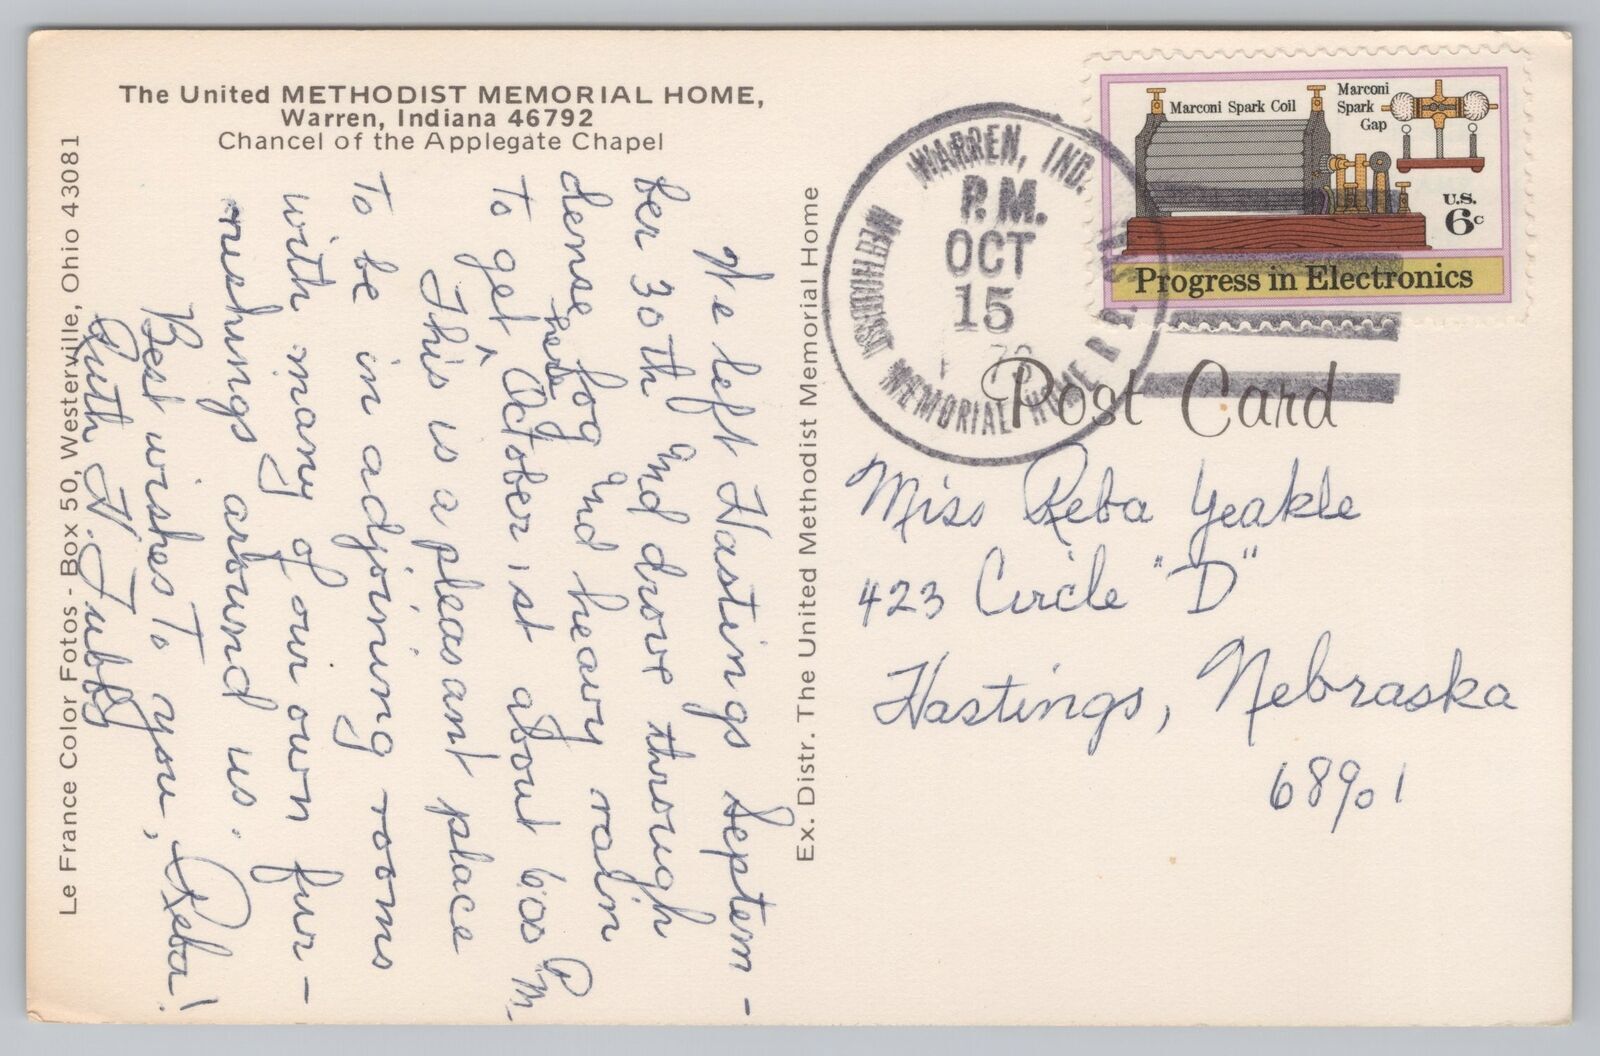 The United METHODIST MEMORIAL HOME,
Warren, Indiana 46792
Chancel of the Applegate Chapel
We left Hastings Septem-
ber 30th and drove through
dense fog and heavy rain
to get here October 1st about 6:00 P.M.
This is a pleasant place
to be in adjoining rooms
with many of our own fur-
nishings around us.
Best wishes To you, Reba!
Ruth H. Tubbs
Le France Color Fotos - Box 50, Westerville, Ohio 43081
Ex. Distr. The United Methodist Memorial Home
WARREN, IND.
P.M.
OCT
15
METHODIST MEMORIAL HOME R
Marconi Spark Coil
Marconi
Spark
Gap
U.S.
6c
Progress in Electronics
Post Card
Miss Reba Yeakle
423 Circle "D"
Hastings, Nebraska
68901